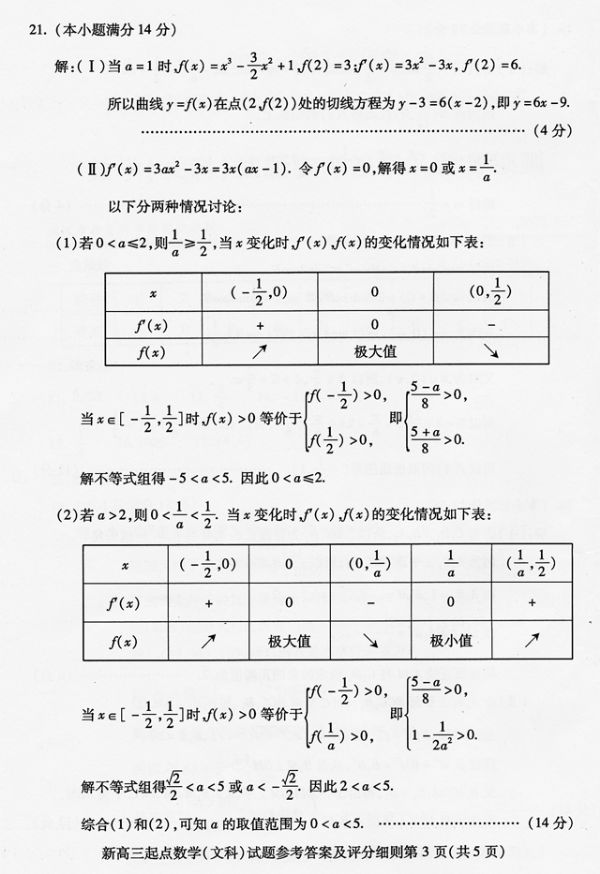 21. (本小题满分14分)
解:(Ⅰ)当a=1时,f(x)=x³-3/2x²+1,f(2)=3;f′(x)=3x²-3x,f′(2)=6.
所以曲线y=f(x)在点(2,f(2))处的切线方程为y-3=6(x-2),即y=6x-9.
…………………………………………………………(4分)
(Ⅱ)f′(x)=3ax²-3x=3x(ax-1). 令f′(x)=0,解得x=0或x=1/a.
以下分两种情况讨论:
(1)若0<a≤2,则1/a≥1/2,当x变化时,f′(x),f(x)的变化情况如下表:
x (-1/2,0) 0 (0,1/2)
f′(x) + 0
f(x) ↗ 极大值 ↘
当x∈[-1/2,1/2]时,f(x)>0等价于{f(-1/2)>0, f(1/2)>0, 即{5-a/8>0, 5+a/8>0.
解不等式组得-5<a<5. 因此0<a≤2.
(2)若a>2,则0<1/a<1/2. 当x变化时,f′(x),f(x)的变化情况如下表:
x (-1/2,0) 0 (0,1/a) 1/a (1/a,1/2)
f′(x) + 0 - 0 +
f(x) ↗ 极大值 ↘ 极小值 ↗
当x∈[-1/2,1/2]时,f(x)>0等价于{f(-1/2)>0, f(1/a)>0, 即{5-a/8>0, 1-1/2a²>0.
解不等式组得√2/2<a<5或a<-√2/2. 因此2<a<5.
综合(1)和(2),可知a的取值范围为0<a<5. …………………………(14分)
新高三起点数学(文科)试题参考答案及评分细则第3页(共5页)